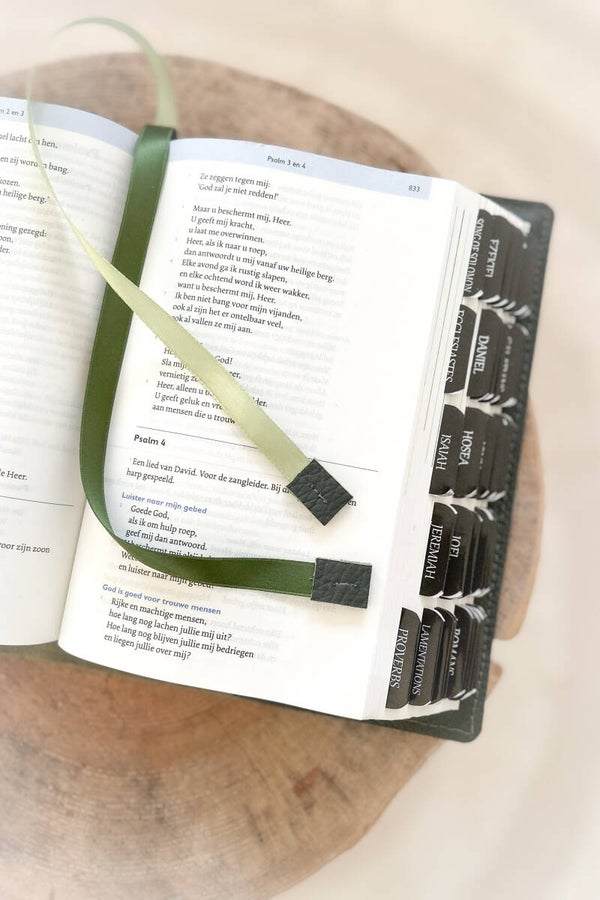 m 2 en 3
lacht om hen,
en zij worden bang.
kozen.
heilige berg.'
ning gezegd:
oon,
der.
de Heer.
voor zijn zoon
Psalm 3 en 4
833
Ze zeggen tegen mij:
'God zal je niet redden!'
Maar u beschermt mij, Heer.
U geeft mij kracht,
u laat me overwinnen.
Heer, als ik naar u roep,
dan antwoordt u mij vanaf uw heilige berg.
Elke avond ga ik rustig slapen,
en elke ochtend word ik weer wakker,
want u beschermt mij, Heer.
Ik ben niet bang voor mijn vijanden,
ook al zijn het er ontelbaar veel,
ook al vallen ze mij aan.
God!
Sla mijn
vernietig
Heer, alleen u
U geeft geluk en
aan mensen die u
Psalm 4
Een lied van David. Voor de zangleider. Bij
harp gespeeld.
Luister naar mijn gebed
Goede God,
als ik om hulp roep,
geef mij dan antwoord.
en luister naar mijn gebed!
God is goed voor trouwe mensen
Rijke en machtige mensen,
hoe lang nog lachen jullie mij uit?
Hoe lang nog blijven jullie mij bedriegen
en liegen jullie over mij?
SONG OF SOLOMON
EZEKIEL
ECCLESIASTES
DANIEL
ISAIAH
HOSEA
JEREMIAH
JOEL
PROVERBS
LAMENTATIONS
ROMANS